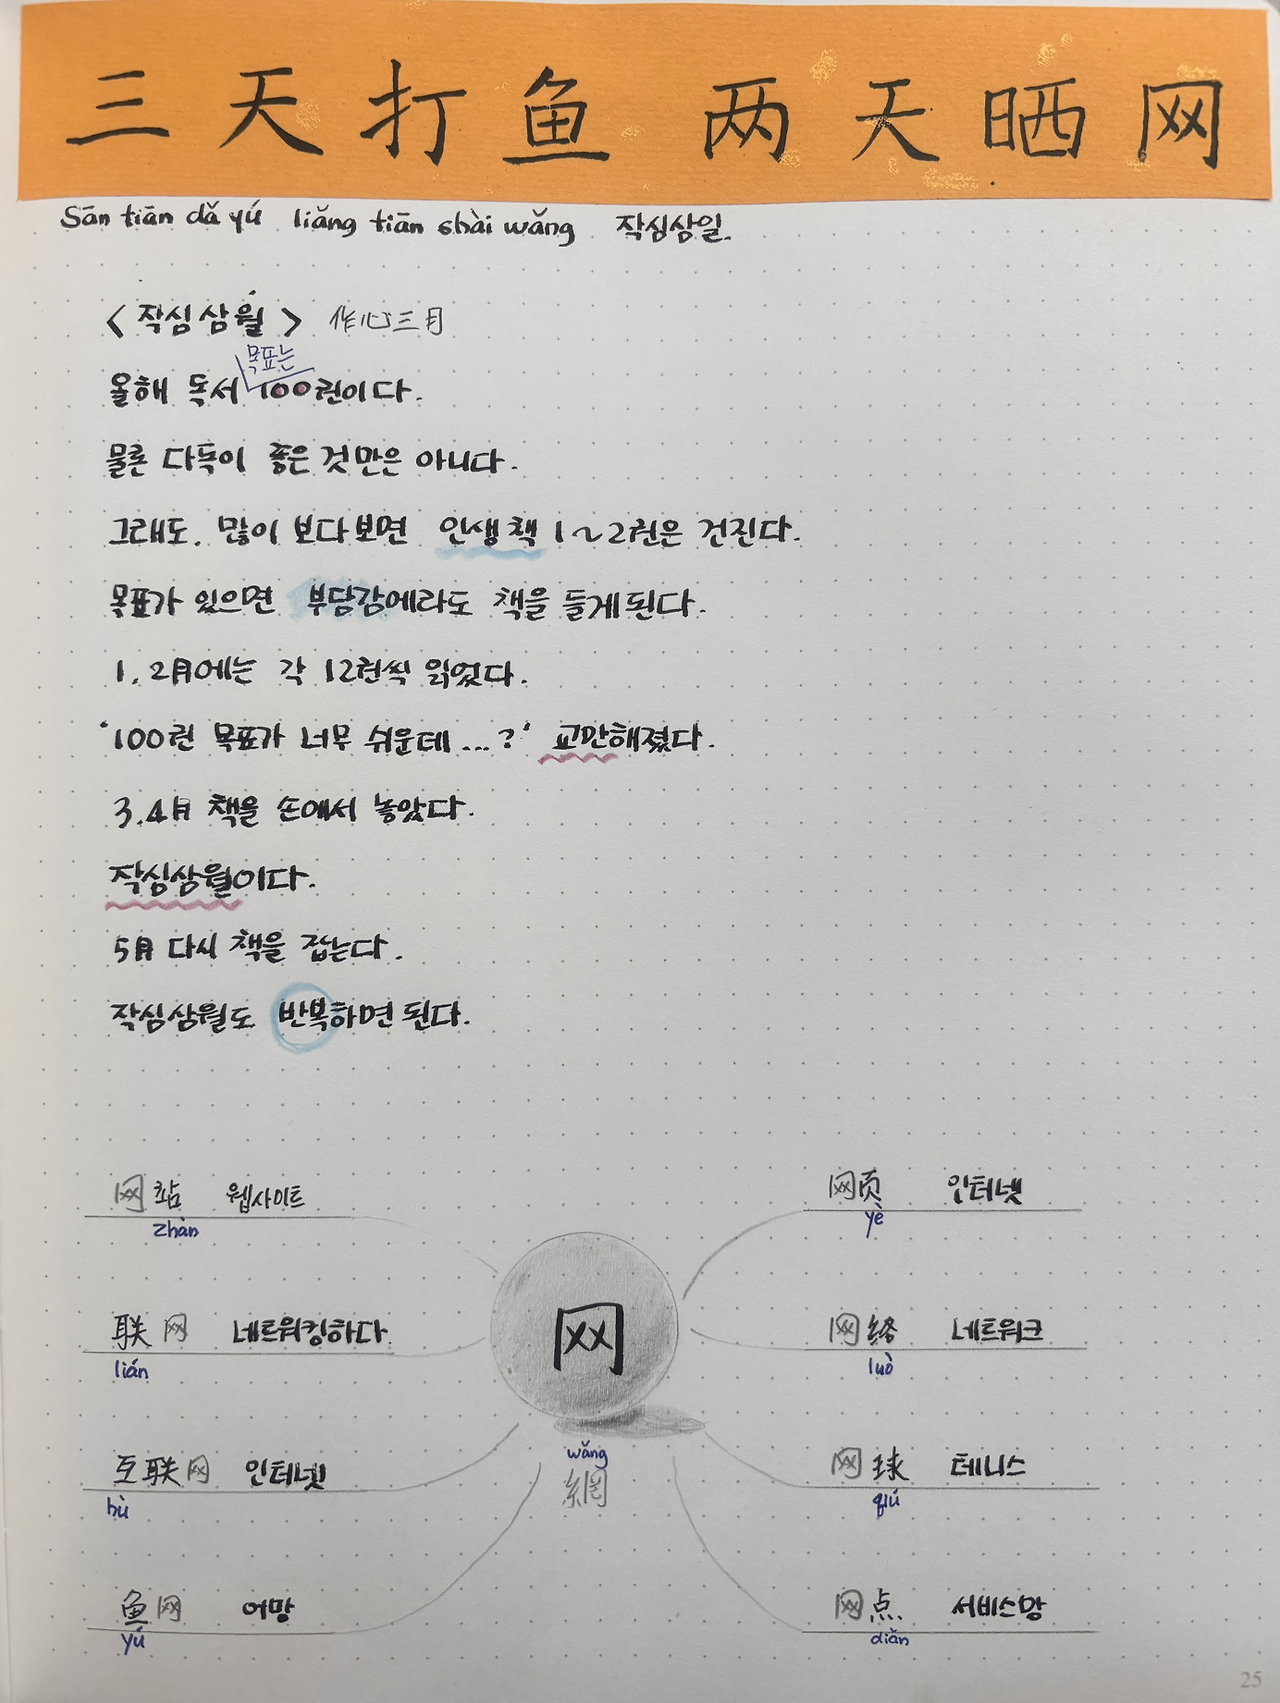 三天打鱼 两天晒网
Sān tiān dǎ yú liǎng tiān shài wǎng 작심삼일.
< 작심삼월 > 作心三月
목표는
올해 독서 100권이다.
물론 다독이 좋은 것만은 아니다.
그래도, 많이 보다보면 인생책 1~2권은 건진다.
목표가 있으면 부담감에라도 책을 들게된다.
1, 2月에는 각 12권씩 읽었다.
'100권 목표가 너무 쉬운데...?' 교만해졌다.
3.4月 책을 손에서 놓았다.
작심삼월이다.
5月 다시 책을 잡는다.
작심삼월도 반복하면 된다.
网站 웹사이트
zhàn
联网 네트워킹하다
lián
互联网 인터넷
hù
鱼网 어망
yú
网
wǎng
網
网页 인터넷
yè
网络 네트워크
luò
网球 테니스
qiú
网点 서비스망
diǎn
25